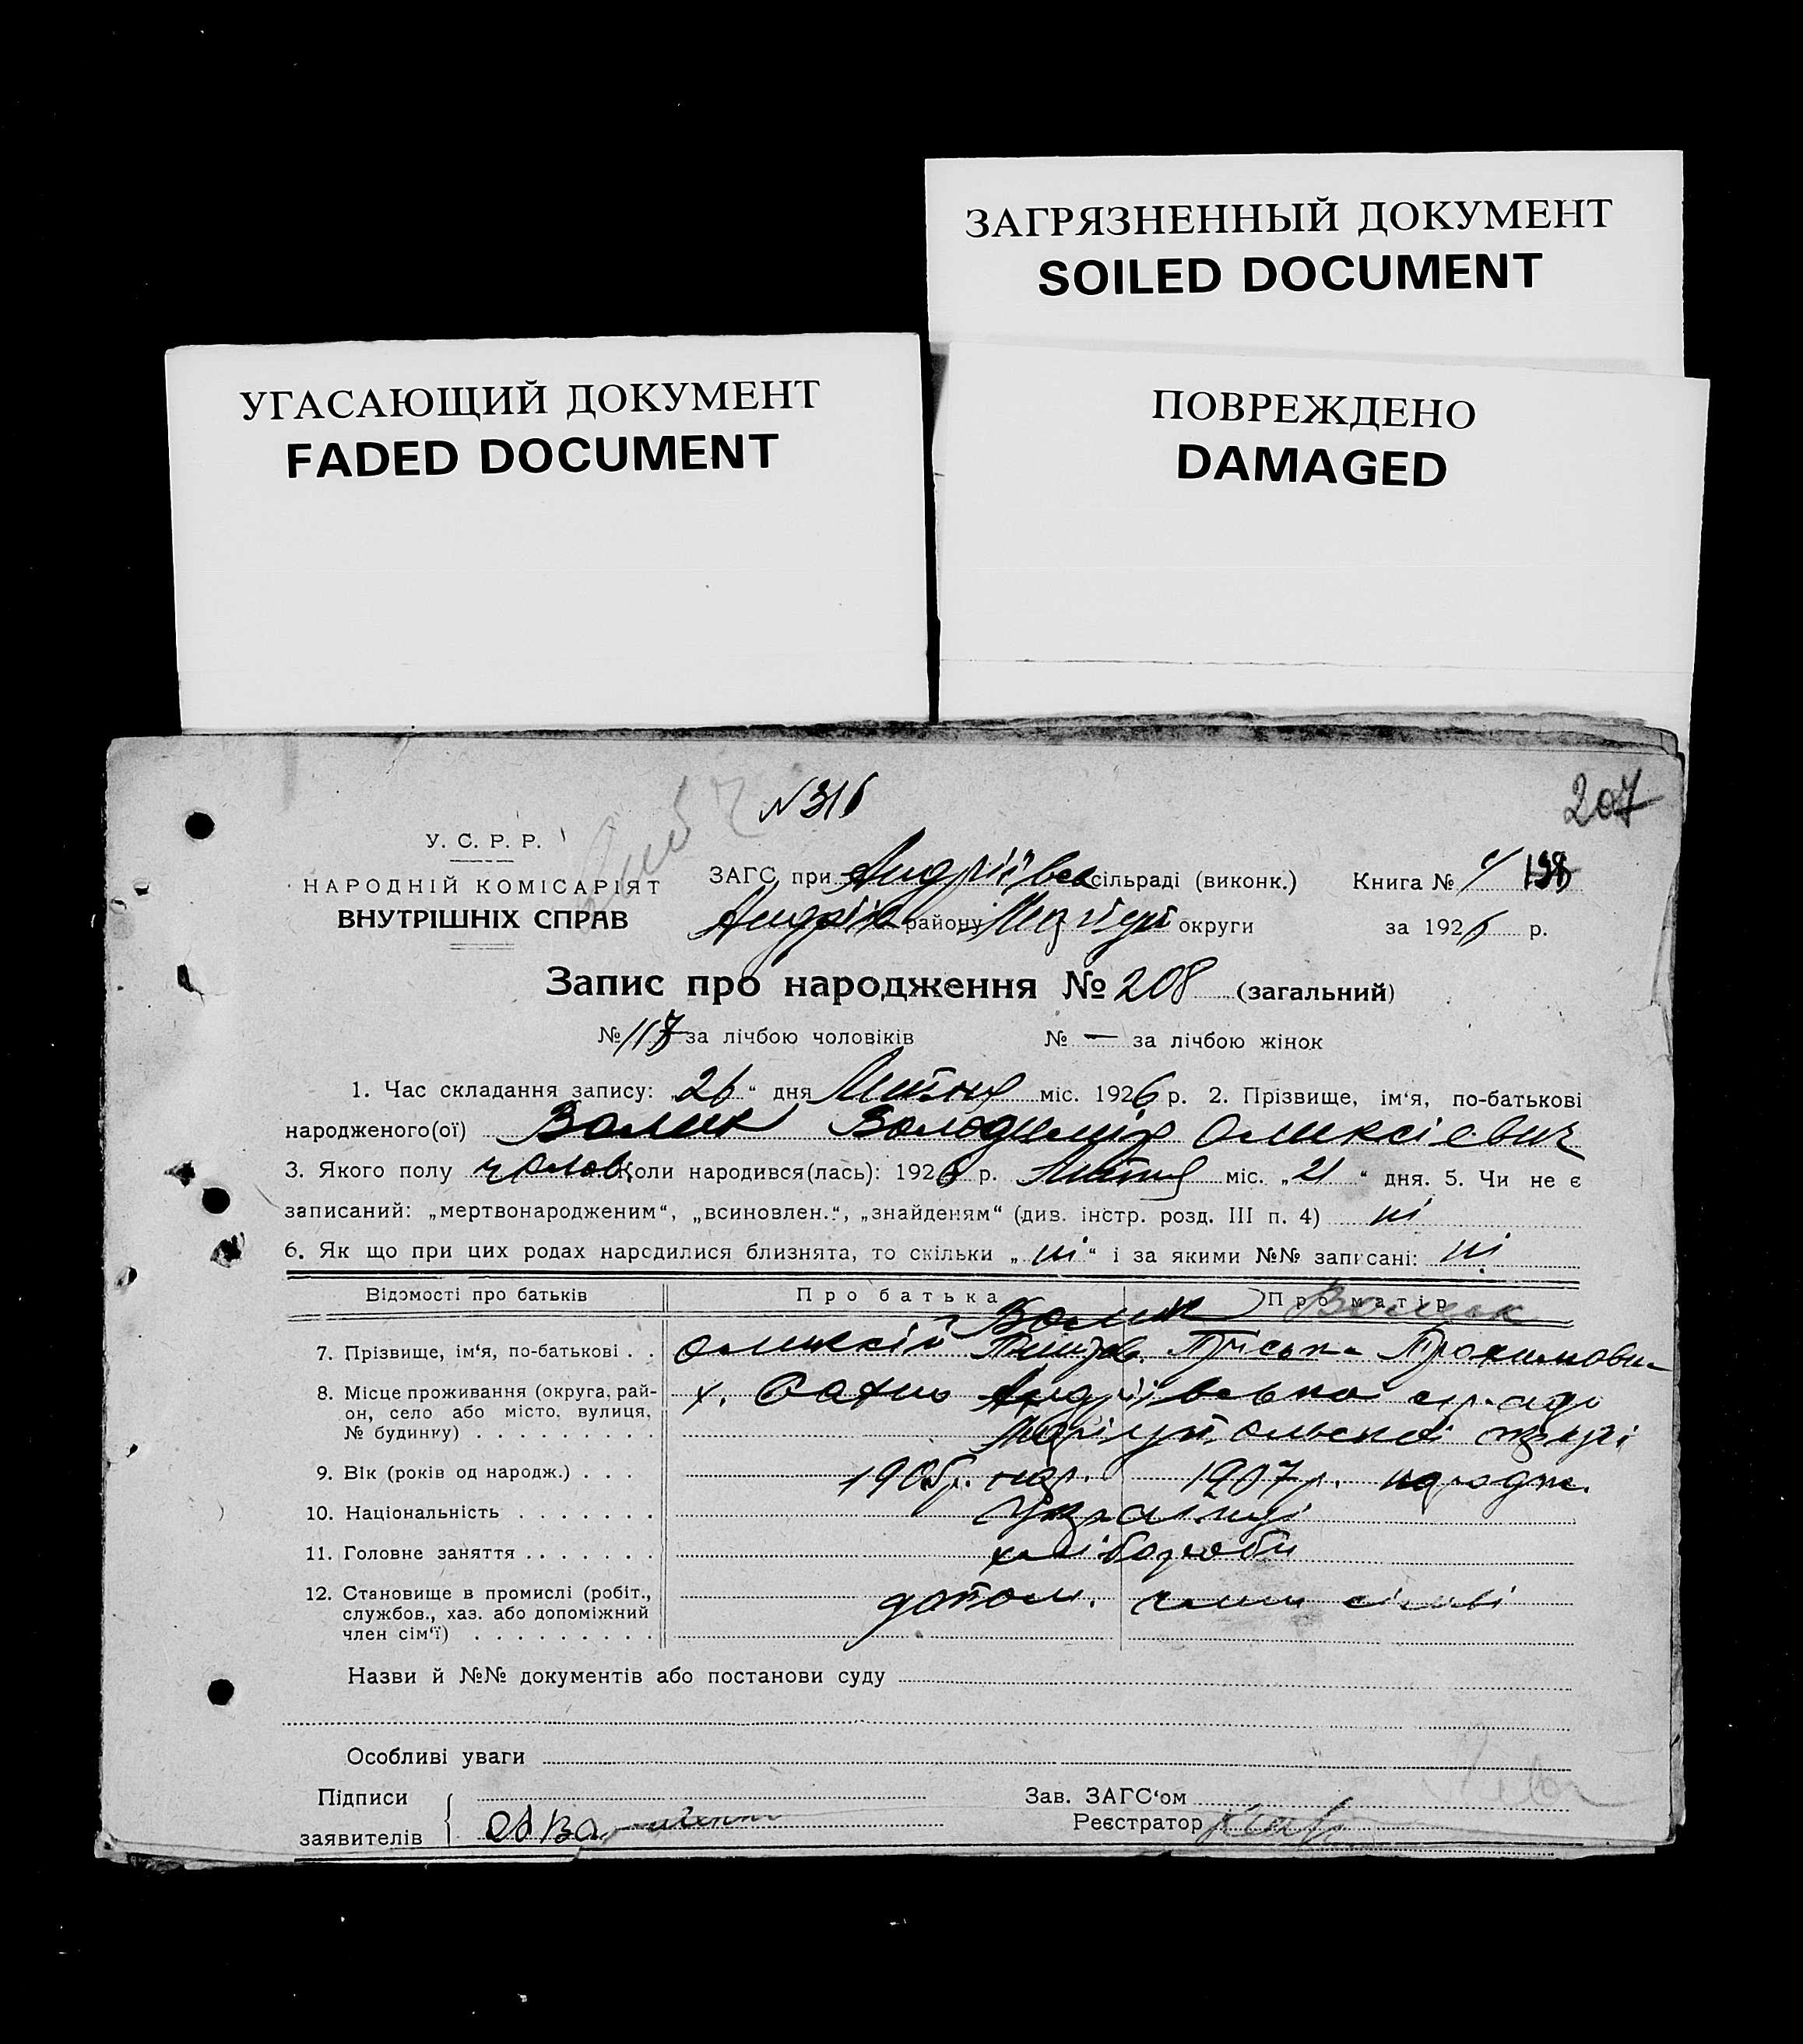 ЗАГРЯЗНЕННЫЙ ДОКУМЕНТ
SOILED DOCUMENT
УГАСАЮЩИЙ ДОКУМЕНТ
FADED DOCUMENT
ПОВРЕЖДЕНО
DAMAGED
N 316
207
У. С. Р. Р.
НАРОДНІЙ КОМІСАРІЯТ
ВНУТРІШНІХ СПРАВ
ЗАГС при сільраді (виконк.) Книга № 198
району округи за 1926 р.
Запис про народження № 208 (загальний)
№ 117 за лічбою чоловіків № — за лічбою жінок
1. Час складання запису: „26“ дня Литня міс. 1926 р. 2. Прізвище, ім‘я, по-батькові
народженого(ої) Волик Володимир Олексієвич
3. Якого полу чолов. Коли народився(лась): 1926 р. Литня міс. „21“ дня. 5. Чи не є
записаний: „мертвонародженим“, „всиновлен.“, „знайденям“ (див. інстр. розд. III п. 4) ні
6. Як що при цих родах народилися близнята, то скільки „ні“ і за якими №№ записані: ні
Відомості про батьків Про батька Про матір
Волик
7. Прізвище, ім‘я, по-батькові . . Олексій Приська
8. Місце проживання (округа, рай-
он, село або місто, вулиця,
№ будинку) . . . . . . . . . Маріупольскої округи
9. Вік (років од народж.) . . . 1905 р. нар. 1907 р. народж.
10. Національність . . . . . . . Українці
11. Головне заняття . . . . . . . хлібороби
12. Становище в промислі (робіт.,
службов., хаз. або допоміжний
член сім‘ї) . . . . . . . . . допом. член сімї
Назви й №№ документів або постанови суду
Особливі уваги
Підписи
заявителів
Зав. ЗАГС‘ом
Реєстратор